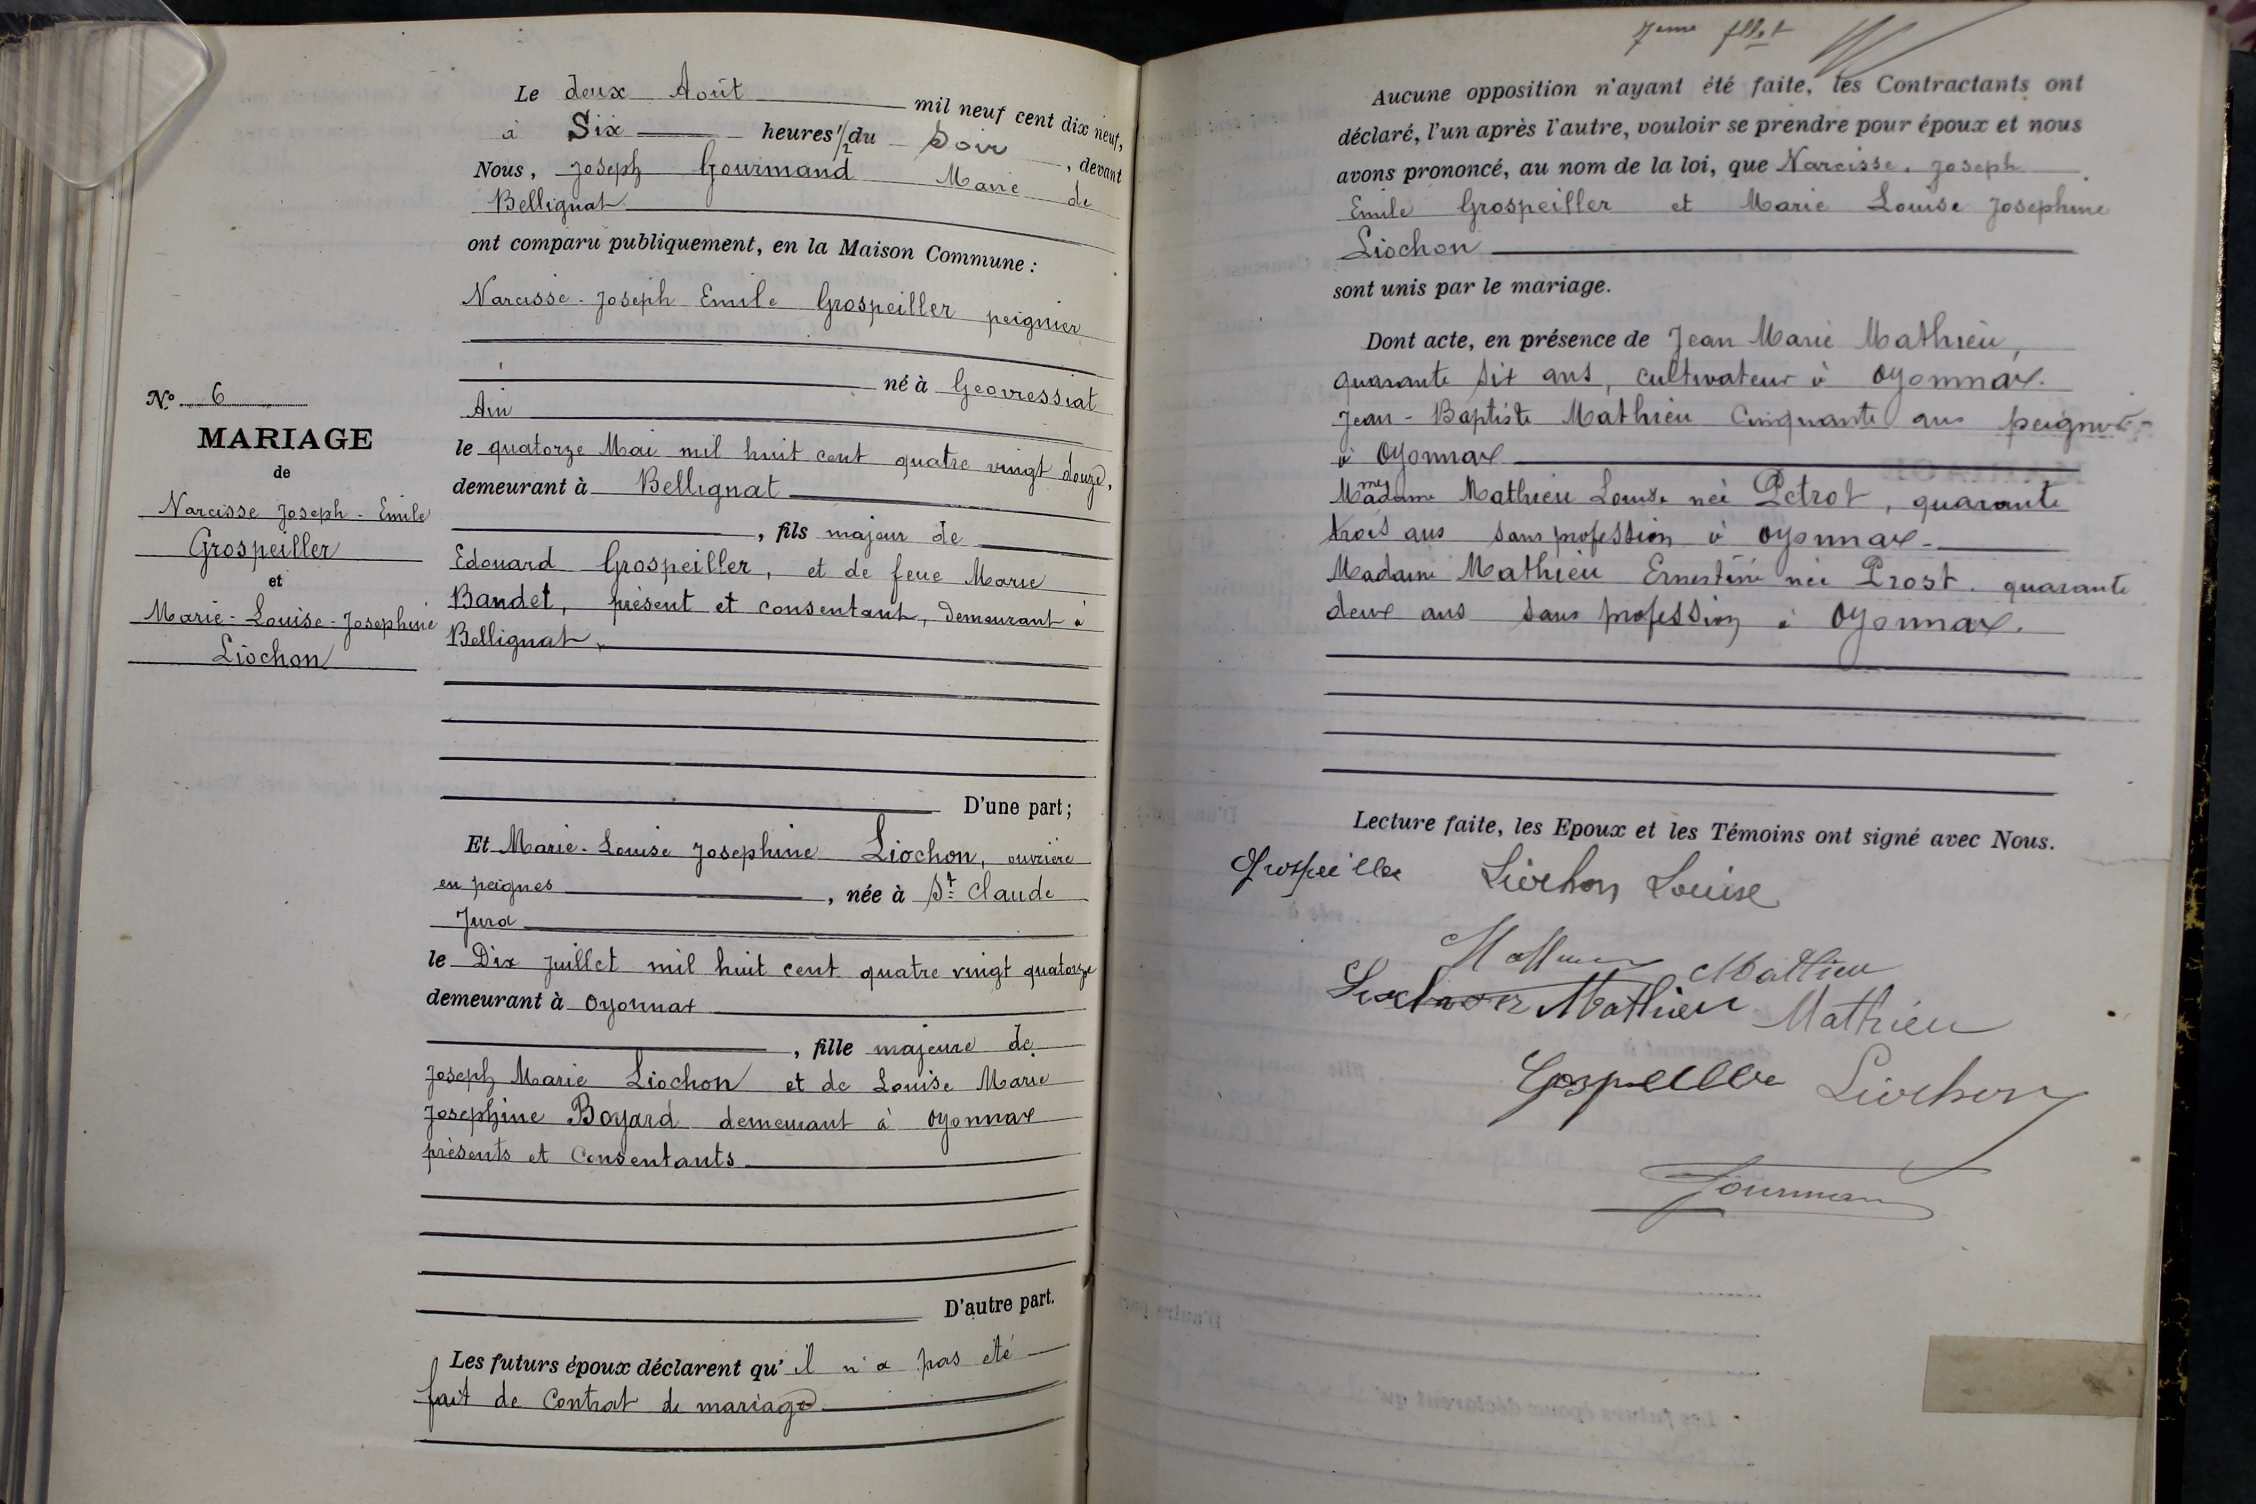 N° 6
MARIAGE
de
Narcisse Joseph-Emile
Grospeiller
et
Marie-Louise-Josephine
Liochon
Le deux Août mil neuf cent dix neuf,
à Six heures 1/2 du Soir, devant
Nous, Joseph Gourmand Maire de
Bellignat
ont comparu publiquement, en la Maison Commune :
Narcisse-Joseph Emile Grospeiller peignier
né à Geovressiat
Ain
le quatorze Mai mil huit cent quatre vingt douze,
demeurant à Bellignat
, fils majeur de
Edouard Grospeiller, et de feue Marie
Bandet, présent et consentant, demeurant à
Bellignat,
D'une part;
Et Marie-Louise Josephine Liochon, ouvrière
en peignes, née à St Claude
Jura
le Dix Juillet mil huit cent quatre vingt quatorze
demeurant à Oyonnax
, fille majeure de
Joseph Marie Liochon et de Louise Marie
Josephine Boyard demeurant à Oyonnax
présents et Consentants
D'autre part.
Les futurs époux déclarent qu'il n'a pas eté
fait de Contrat de mariage
7eme
Aucune opposition n'ayant été faite, les Contractants ont
déclaré, l'un après l'autre, vouloir se prendre pour époux et nous
avons prononcé, au nom de la loi, que Narcisse. Joseph
Emile Grospeiller et Marie Louise Josephine
Liochon
sont unis par le mariage.
Dont acte, en présence de Jean Marie Mathieu,
quarante six ans, cultivateur à Oyonnax.
Jean-Baptiste Mathieu Cinquante ans peignier
à Oyonnax
Madame Mathieu Louise neé Petrot, quarante
trois ans sans profession à Oyonnax-
Madame Mathieu Ernestine neé Prost. quarante
deux ans sans profession à Oyonnax.
Lecture faite, les Epoux et les Témoins ont signé avec Nous.
Grospeiller Liochon Louise
Mathieu
Mathieu Mathieu
Liochon
Gourman